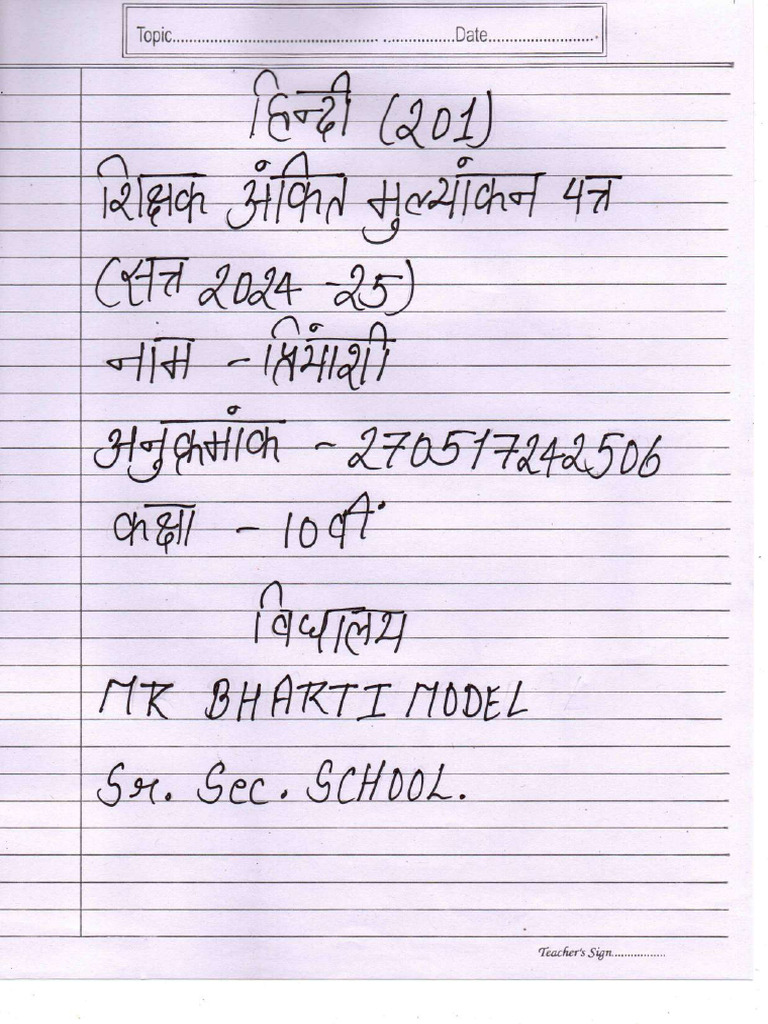 Topic.............................................. ..................Date...........................
हिन्दी (201)
शिक्षक अंकित मुल्यांकन पत्र
(सत्र 2024 -25)
नाम - प्रियांशी
अनुक्रमांक - 270517242506
कक्षा - 10वीं
विद्यालय
MR BHARTI MODEL
Sr. Sec. SCHOOL.
Teacher's Sign.................